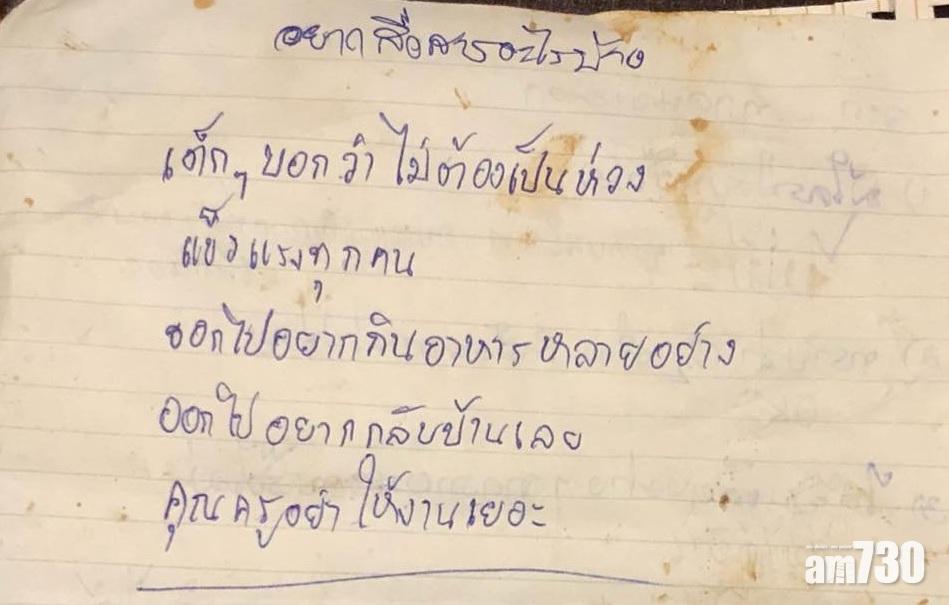 อยากสื่อสารอะไรบ้าง
เด็กๆ บอกว่า ไม่ต้องเป็นห่วง
แข็งแรงทุกคน
ออกไปอยากกินอาหารหลายอย่าง
ออกไปอยากกลับบ้านเลย
คุณครูอย่าให้งานเยอะ
am730